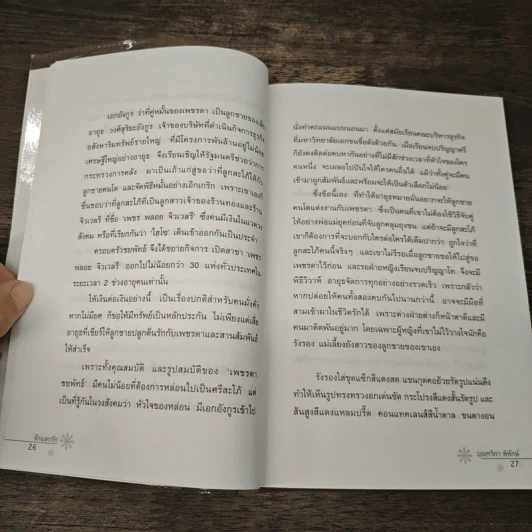 เอกอังกูร ว่าที่คู่หมั้นของเพชรดา เป็นลูกชายของเสี่ย
อายุธ วงศ์สุริยะอังกูร เจ้าของบริษัทที่ดำเนินกิจการธุรกิจ
อสังหาริมทรัพย์รายใหญ่ ที่มีโครงการพันล้านอยู่ไม่น้อย
เศรษฐีใหญ่อย่างอายุธ จึงเรียนเชิญให้รัฐมนตรีช่วยว่าการ
กระทรวงการคลัง มาเป็นเถ้าแก่สู่ขอว่าที่ลูกสะใภ้ให้กับ
ลูกชายคนโต และจัดพิธีหมั้นอย่างเอิกเกริก เพราะเขาออกจะ
ชื่นชอบว่าที่ลูกสะใภ้ที่เป็นลูกสาวเจ้าของร้านทองและร้าน
จิวเวลรี่ ที่ชื่อ 'เพชร พลอย จิวเวลรี่' ซึ่งคนมีเงินในแวดวง
สังคม หรือที่เรียกกันว่า 'ไฮโซ' เดินเข้าออกกันเป็นประจำ
ครอบครัวชยพัทธ์ จึงได้ขยายกิจการ เปิดสาขา 'เพชร
พลอย จิวเวลรี่' ออกไปไม่น้อยกว่า 30 แห่งทั่วประเทศใน
ระยะเวลา 2 ช่วงอายุคนเท่านั้น
ให้เงินต่อเงินอย่างนี้ เป็นเรื่องปกติสำหรับคนมั่งคั่ง
หากไม่มียศ ก็ขอให้มีทรัพย์เป็นหลักประกัน ไม่เพียงแต่เสี่ย
อายุธที่เชียร์ให้ลูกชายปลูกต้นรักกับเพชรดาและสานสัมพันธ์
ให้สำเร็จ
เพราะทั้งคุณสมบัติ และรูปสมบัติของ 'เพชรดา
ชยพัทธ์' มีคนไม่น้อยที่ต้องการหล่อนไปเป็นศรีสะใภ้ แต่
เป็นที่รู้กันในวงสังคมว่า หัวใจของหล่อน มีเอกอังกูรเข้าไป
รักแลกรัก
26
นั่งทำคะแนนแบบนอนมา ตั้งแต่สมัยเรียนคณะบริหารธุรกิจ
ที่มหาวิทยาลัยเอกชนชื่อดังด้วยกัน เมื่อเรียนจบปริญญาตรี
ก็ยังคงติดต่อคบหากันอย่างที่ไม่มีสักช่วงเวลาที่หัวใจใคร
คนหนึ่ง จะเผลอไปปันใจให้ใครคนอื่นได้ แม้ว่าทั้งคู่จะมีคน
เข้ามาผูกสัมพันธ์และพร้อมจะให้เป็นตัวเลือกไม่น้อย
ซึ่งข้อนี้เอง ที่ทำให้อายุธหมายมั่นอยากจะให้ลูกชาย
คนโตแต่งงานกับเพชรดา ซึ่งเป็นคนที่เขาไม่ต้องใช้วิธีจับคู่
ให้อย่างพ่อแม่ยุคก่อนที่จับลูกคลุมถุงชน แต่ถ้าจะมีลูกสะใภ้
เขาก็ต้องการที่จะบอกกับใครต่อใครได้เต็มปากว่า ถูกใจว่าที่
ลูกสะใภ้คนนี้จริงๆ และเขาไม่รีรอเมื่อลูกชายขอให้ไปสู่ขอ
เพชรดาไว้ก่อน และรอฝ่ายหญิงเรียนจบปริญญาโท จึงจะมี
พิธีวิวาห์ อายุธจัดการทุกอย่างอย่างรวดเร็ว เพราะกลัวว่า
หากปล่อยให้คนทั้งสองคบกันไปนานกว่านี้ อาจจะมีมือที่
สามเข้ามาในชีวิตรักได้ เพราะต่างฝ่ายต่างก็หน้าตาดีและมี
คนมาติดพันอยู่มาก โดยเฉพาะผู้หญิงที่เขาไม่ไว้วางใจนักคือ
รังรอง แม่เลี้ยงยังสาวของลูกชายของเขาเอง
รังรองใส่ชุดแซ็กสีแดงสด แขนกุดคออ้วยรัดรูปแน่นตึง
ทำให้เห็นรูปทรงทรวงอกเด่นชัด กระโปรงสีแดงสั้นรัดรูป และ
ส้นสูงสีแดงแหลมปรี๊ด คอนแทคเลนส์สีน้ำตาล ขนตางอน
บุณฑริกา พิทักษ์
27